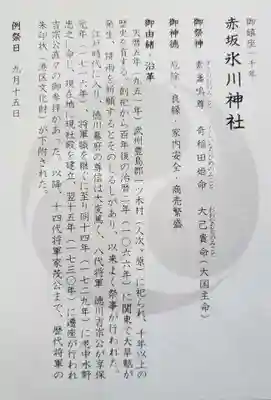 御鎮座一千年
赤坂氷川神社
御祭神 素盞嗚尊 奇稲田姫命 大己貴命(大国主命)
御神徳 厄除・良縁・家内安全・商売繁盛
御由緒・沿革
天暦五年(九五一年)武州豊島郡一ツ木村(人次ヶ原)に祀られ、千年以上の
歴史を有する。創祀から百年後の治暦二年(一〇六六年)に関東で大旱魃が
発生、降雨を祈願するとそのしるしがあり、以来よく祭事が行われた。
江戸時代に入り、徳川幕府の尊信は大変篤く、八代将軍 徳川吉宗公が享保
元年(一七一六年)将軍職を継ぐに至り同十四年(一七二九年)に老中水野
忠之に命じ、現在地に現社殿を建立、翌十五年(一七三〇年)に遷座が行われ
吉宗公直々の御参拝があった。以降、十四代将軍家茂公まで、歴代将軍の
朱印状(港区文化財)が下附された。
例祭日 九月十五日